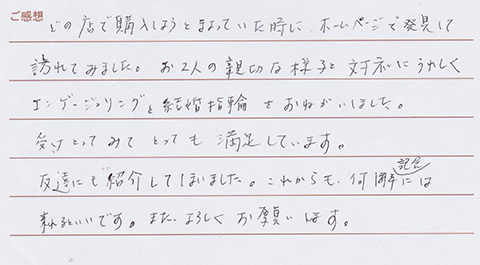 ご感想
どの店で購入しようとまよっていた時に、ホームページで発見して
訪れてみました。お2人の親切な様子と対応にうれしく
エンゲージリングと結婚指輪をおねがいしました。
受けとってみてとっても満足しています。
友達にも紹介してしまいました。これからも、何周年記念には
来れるといいです。また、よろしくお願いします。